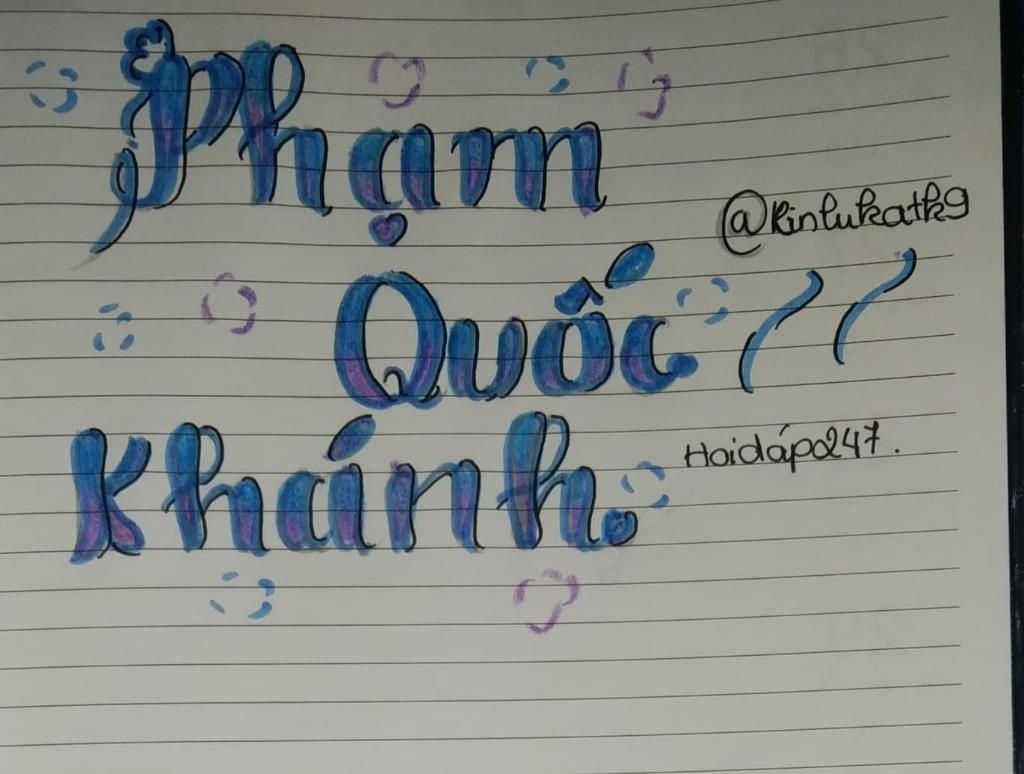 Phạm
@Rinlukatk9
Quốc
Khánh.
Hoidáp247.